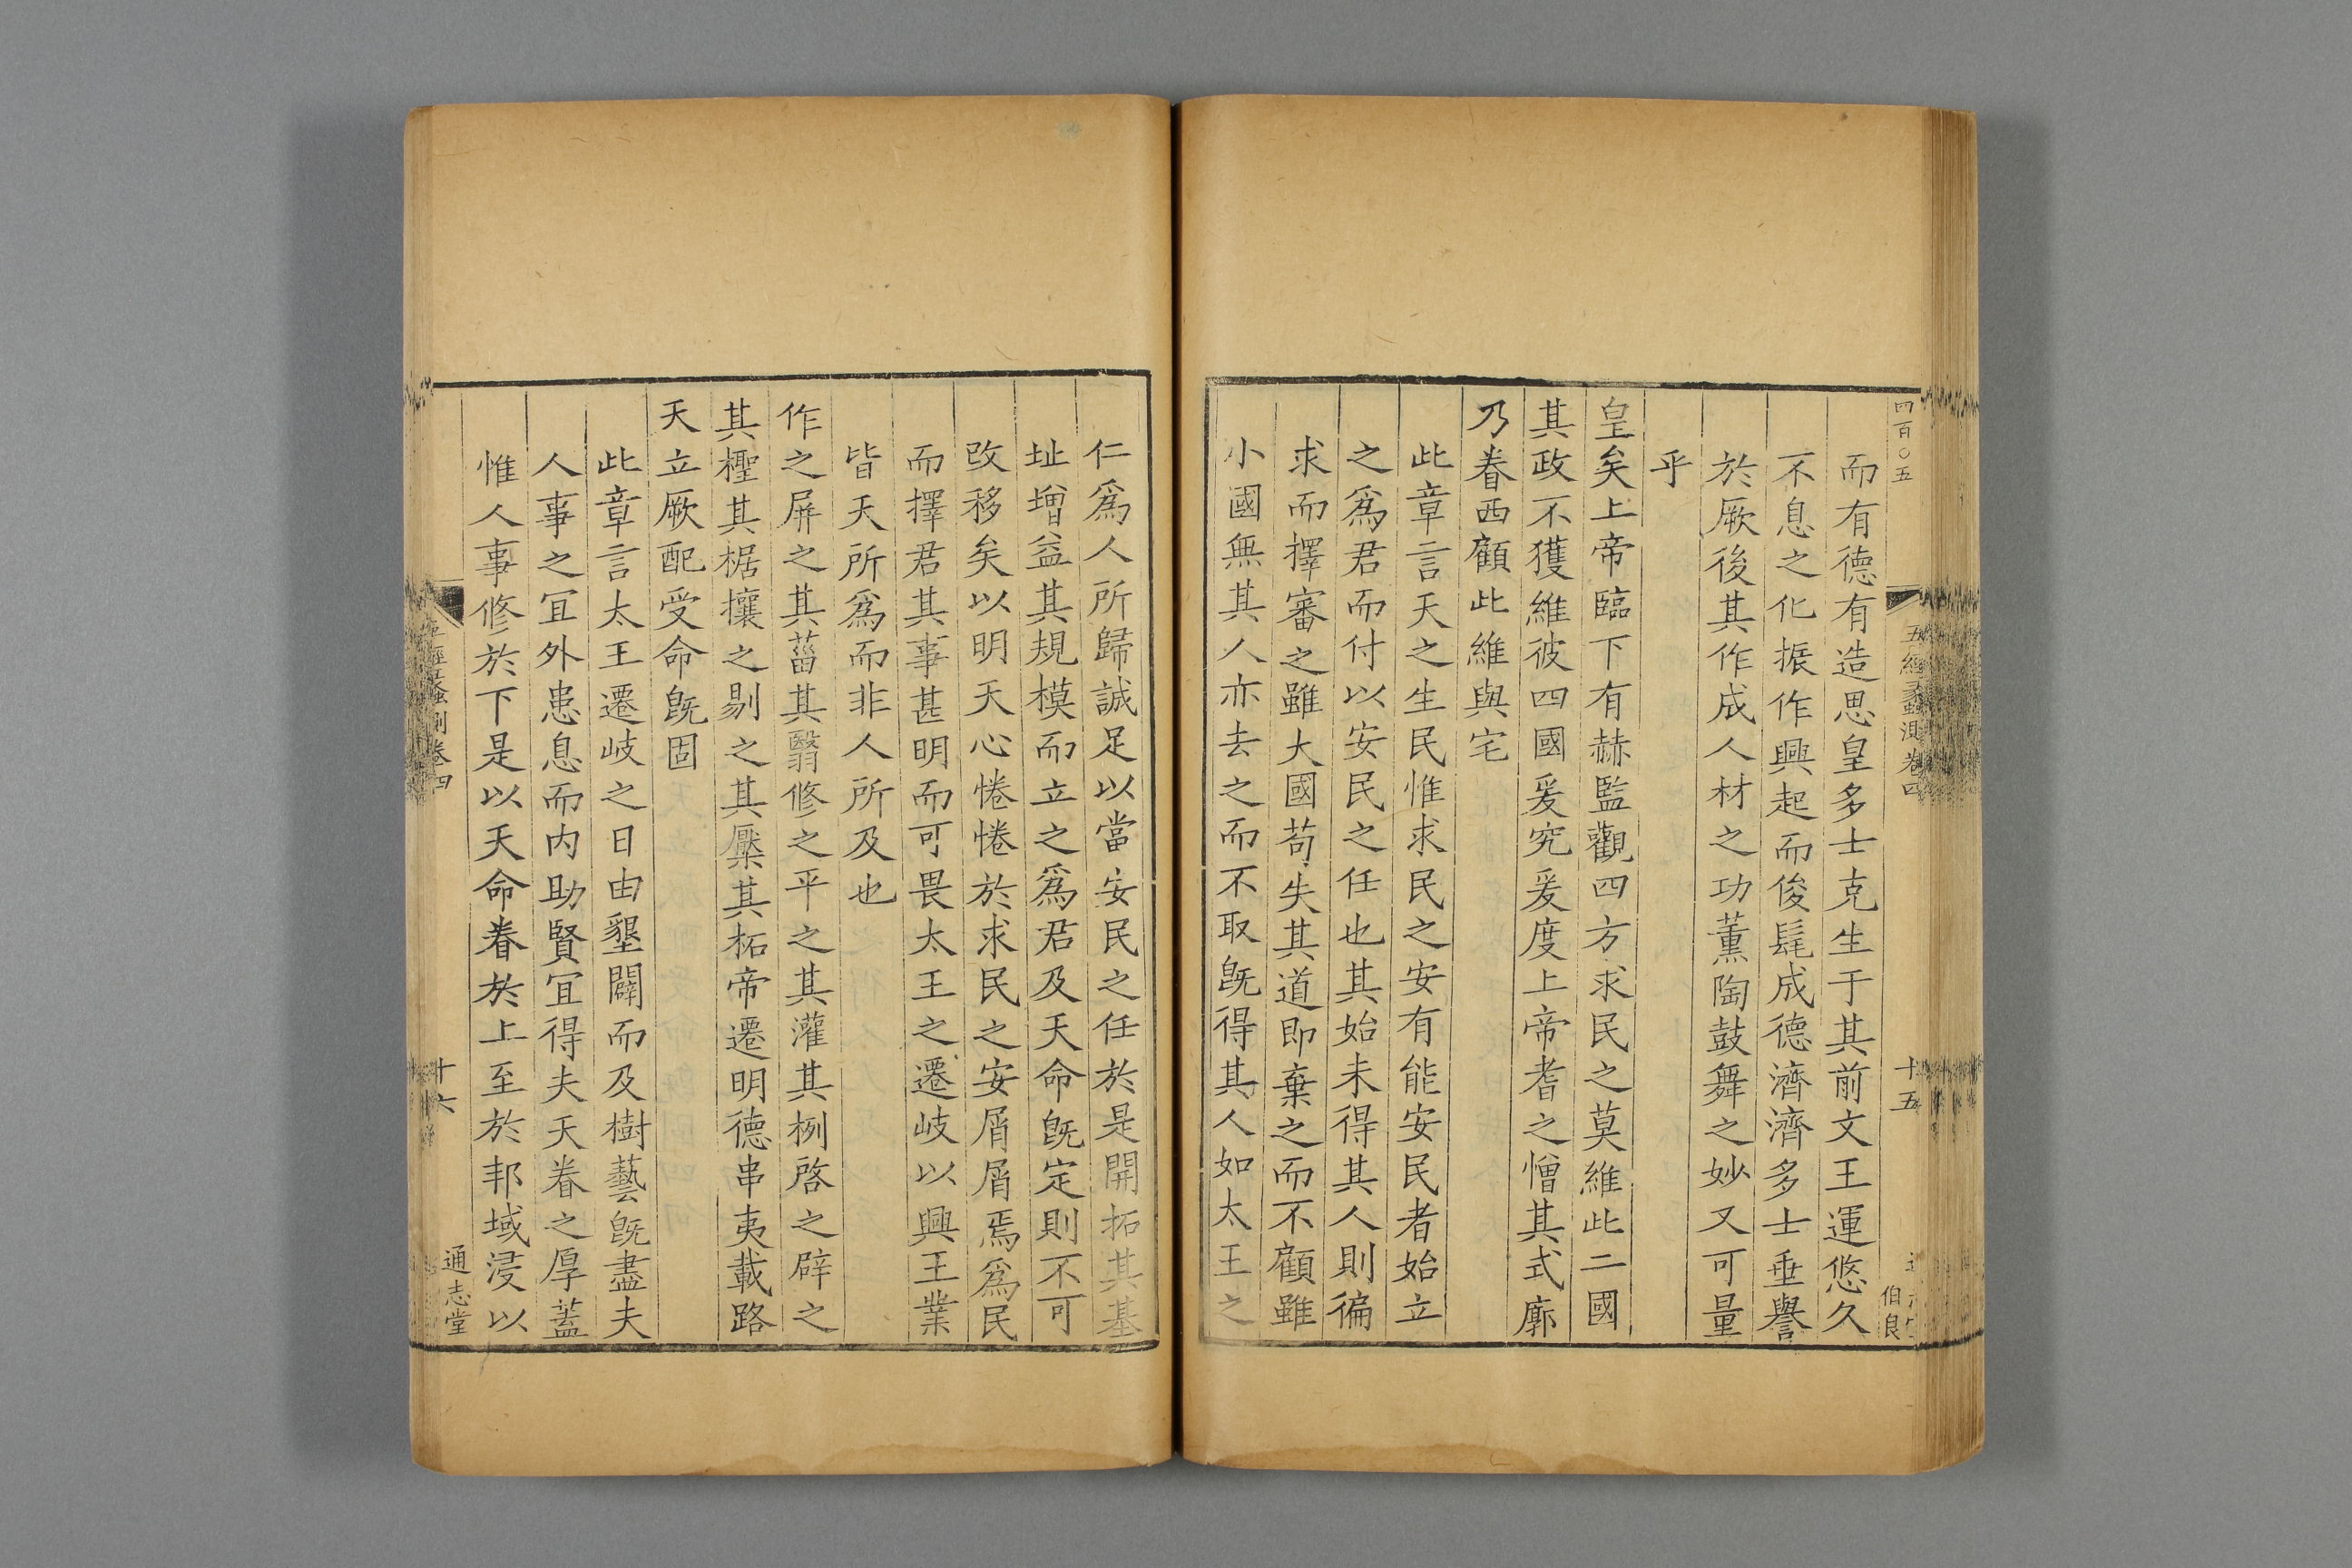 四百〇五
五經蠡測卷四
十五
伯良
而有德有造思皇多士克生于其前文王運悠久
不息之化振作興起而俊髦成德濟濟多士垂譽
於厥後其作成人材之功薰陶鼓舞之妙又可量
乎
皇矣上帝臨下有赫監觀四方求民之莫維此二國
其政不獲維彼四國爰究爰度上帝耆之憎其式廓
乃眷西顧此維與宅
此章言天之生民惟求民之安有能安民者始立
之爲君而付以安民之任也其始未得其人則徧
求而擇審之雖大國苟失其道即棄之而不顧雖
小國無其人亦去之而不取旣得其人如太王之
仁爲人所歸誠足以當安民之任於是開拓其基
址增益其規模而立之爲君及天命旣定則不可
改移矣以明天心惓惓於求民之安屑屑焉爲民
而擇君其事甚明而可畏太王之遷岐以興王業
皆天所爲而非人所及也
作之屏之其菑其翳修之平之其灌其栵啓之辟之
其檉其椐攘之剔之其檿其柘帝遷明德串夷載路
天立厥配受命旣固
此章言太王遷岐之日由墾闢而及樹藝旣盡夫
人事之宜外患息而内助賢宜得夫天眷之厚蓋
惟人事修於下是以天命眷於上至於邦域浸以
五經蠡測卷四
十六
通志堂